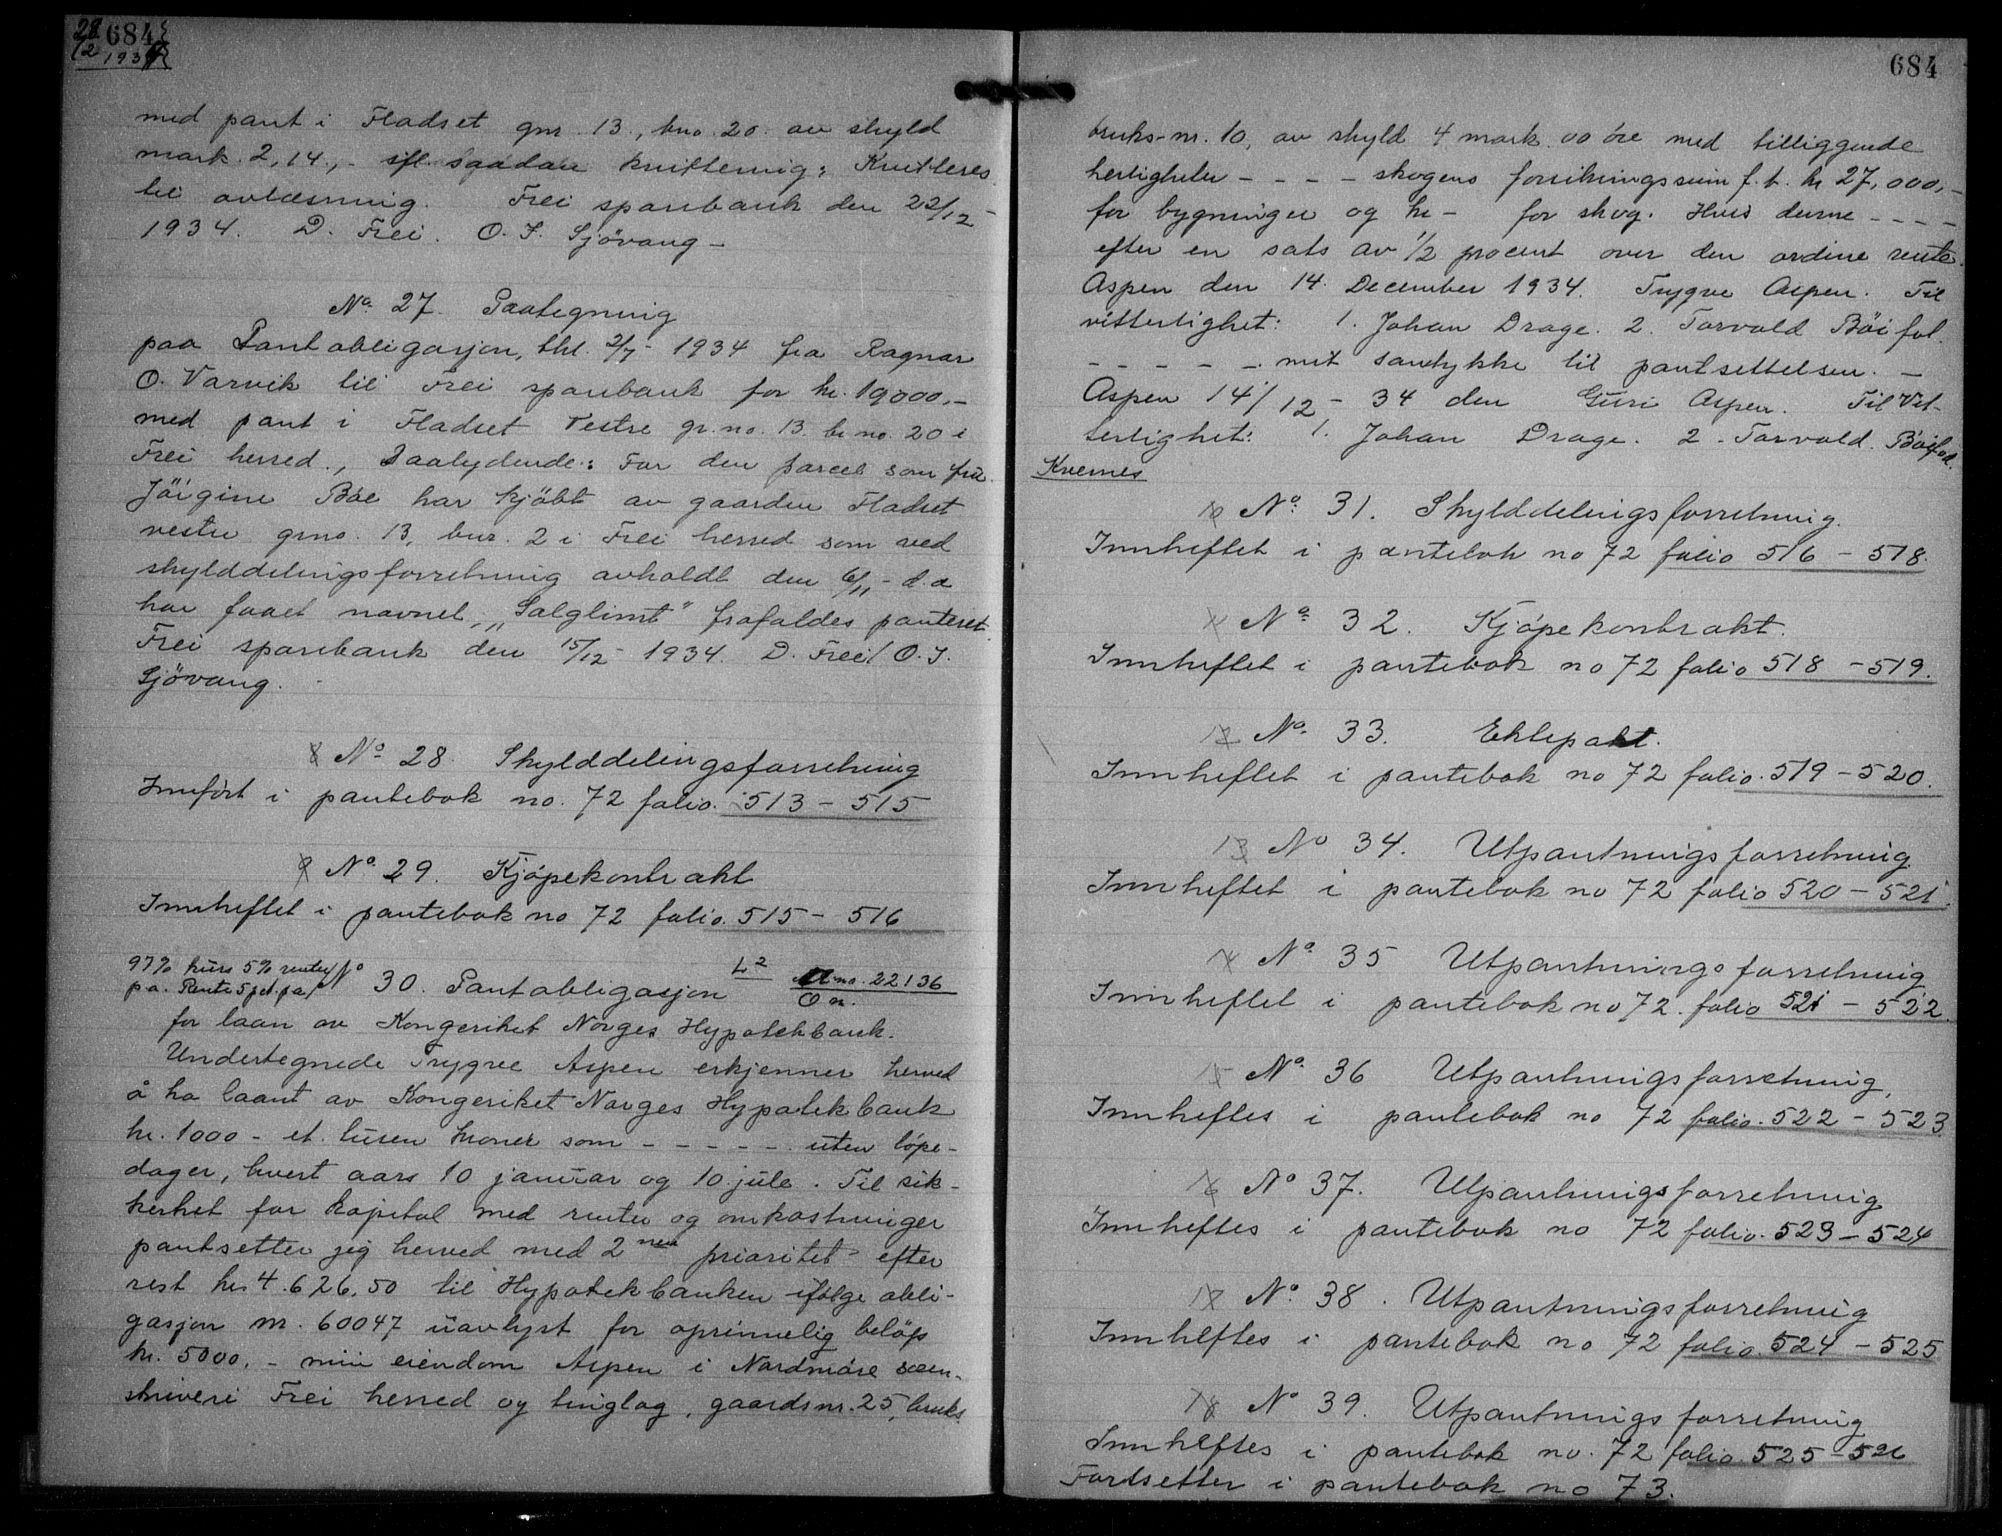 684
med pant i Fladset gnr. 13, bno. 20. av skyld
mark. 2,14., - sfl. saadan kvittering: Kvitteres
til avlæsning. Frei sparebank den 22/12 -
1934. D. Frei. O. I. Sjövang -
No. 27. Paategning
paa Pantobligasjon, thl. 2/7 - 1934 fra Ragnar
O. Varvik til Frei sparebank for kr. 19000,-
med pant i Fladset Vestre gr. no. 13. br. no. 20 i
Frei herred., Saalydende: For den parcel som fru
Jörgine Böe har kjöbt av gaarden Fladset
vestre grno. 13, bnr. 2 i Frei herred som ved
skylddelingsforretning avholdt den 6/11 - d.a
har faaet navnet „Solglimt" frafaldes panteret.
Frei sparebank den 15/12 - 1934. D. Frei / O. I.
Sjövang.
8 No 28 Skylddelingsforretning
Innfört i pantebok no. 72 folio. 513 - 515
9 No. 29. Kjöpekontrakt
Innheftet i pantebok no 72 folio. 515 - 516
97% kurs 5% rente
p.a. Rente 5 pct. p.a.
No 30. Pantobligasjon L2 no. 22136
for laan av Kongeriket Norges Hypotekbank.
Undertegnede Trygve Aspen erkjenner herved
å ha laant av Kongeriket Norges Hypotekbank
kr. 1000 - et tusen kroner som - - - - - uten löpe-
dager, hvert aars 10 januar og 10 jule. Til sik-
kerhet for kapital med renter og omkostninger
pantsetter jeg herved med 2nen prioritet efter
rest kr. 4.626,50 til Hypotekbanken ifölge obli-
gasjon nr. 60047 uavlyst for oprinnelig belöp
kr. 5000,- min eiendom Aspen i Nordmöre soren-
skriveri Frei herred og tinglag, gaardsnr. 25, bruks
684
bruks-nr. 10, av skyld 4 mark 00 öre med tilliggende
herligheter - - - - skogens forsikringssum f.t. kr 27,000,-
for bygninger og kr - for skog. Hvis denne - - - -
efter en sats av 1/2 procent over den ordine rente.
Aspen den 14. December 1934. Trygve Aspen. Til
vitterlighet: 1. Johan Drage. 2. Torvald Böifot.
- - - - - mit samtykke til pantsettelsen. -
Aspen 14/12 - 34 den Guri Aspen. Til Vit-
terlighet: 1. Johan Drage. 2. Torvald Böifot.
Kvernes
10 No. 31. Skylddelingsforretning.
Innheftet i pantebok no 72 folio 516 - 518.
11 No. 32. Kjöpekontrakt.
Innheftet i pantebok no 72 folio 518 - 519.
12 No. 33. Ektepakt.
Innheftet i pantebok no 72 folio. 519 - 520.
13 No 34. Utpantningsforretning.
Innheftet i pantebok no 72 folio 520 - 521.
14 No. 35 Utpantningsforretning
Innheftet i pantebok no 72. folio 521 - 522.
15 No. 36 Utpantningsforretning,
Innheftes i pantebok no 72 folio. 522 - 523
16 No 37. Utpantningsforretning
Innheftes i pantebok no 72 folio. 523 - 524
17 No. 38. Utpantningsforretning
Innheftes i pantebok no 72 folio. 524 - 525
18 No 39. Utpantningsforretning
Innheftes i pantebok no. 72 folio. 525 - 526
Fortsetter i pantebok no 73.